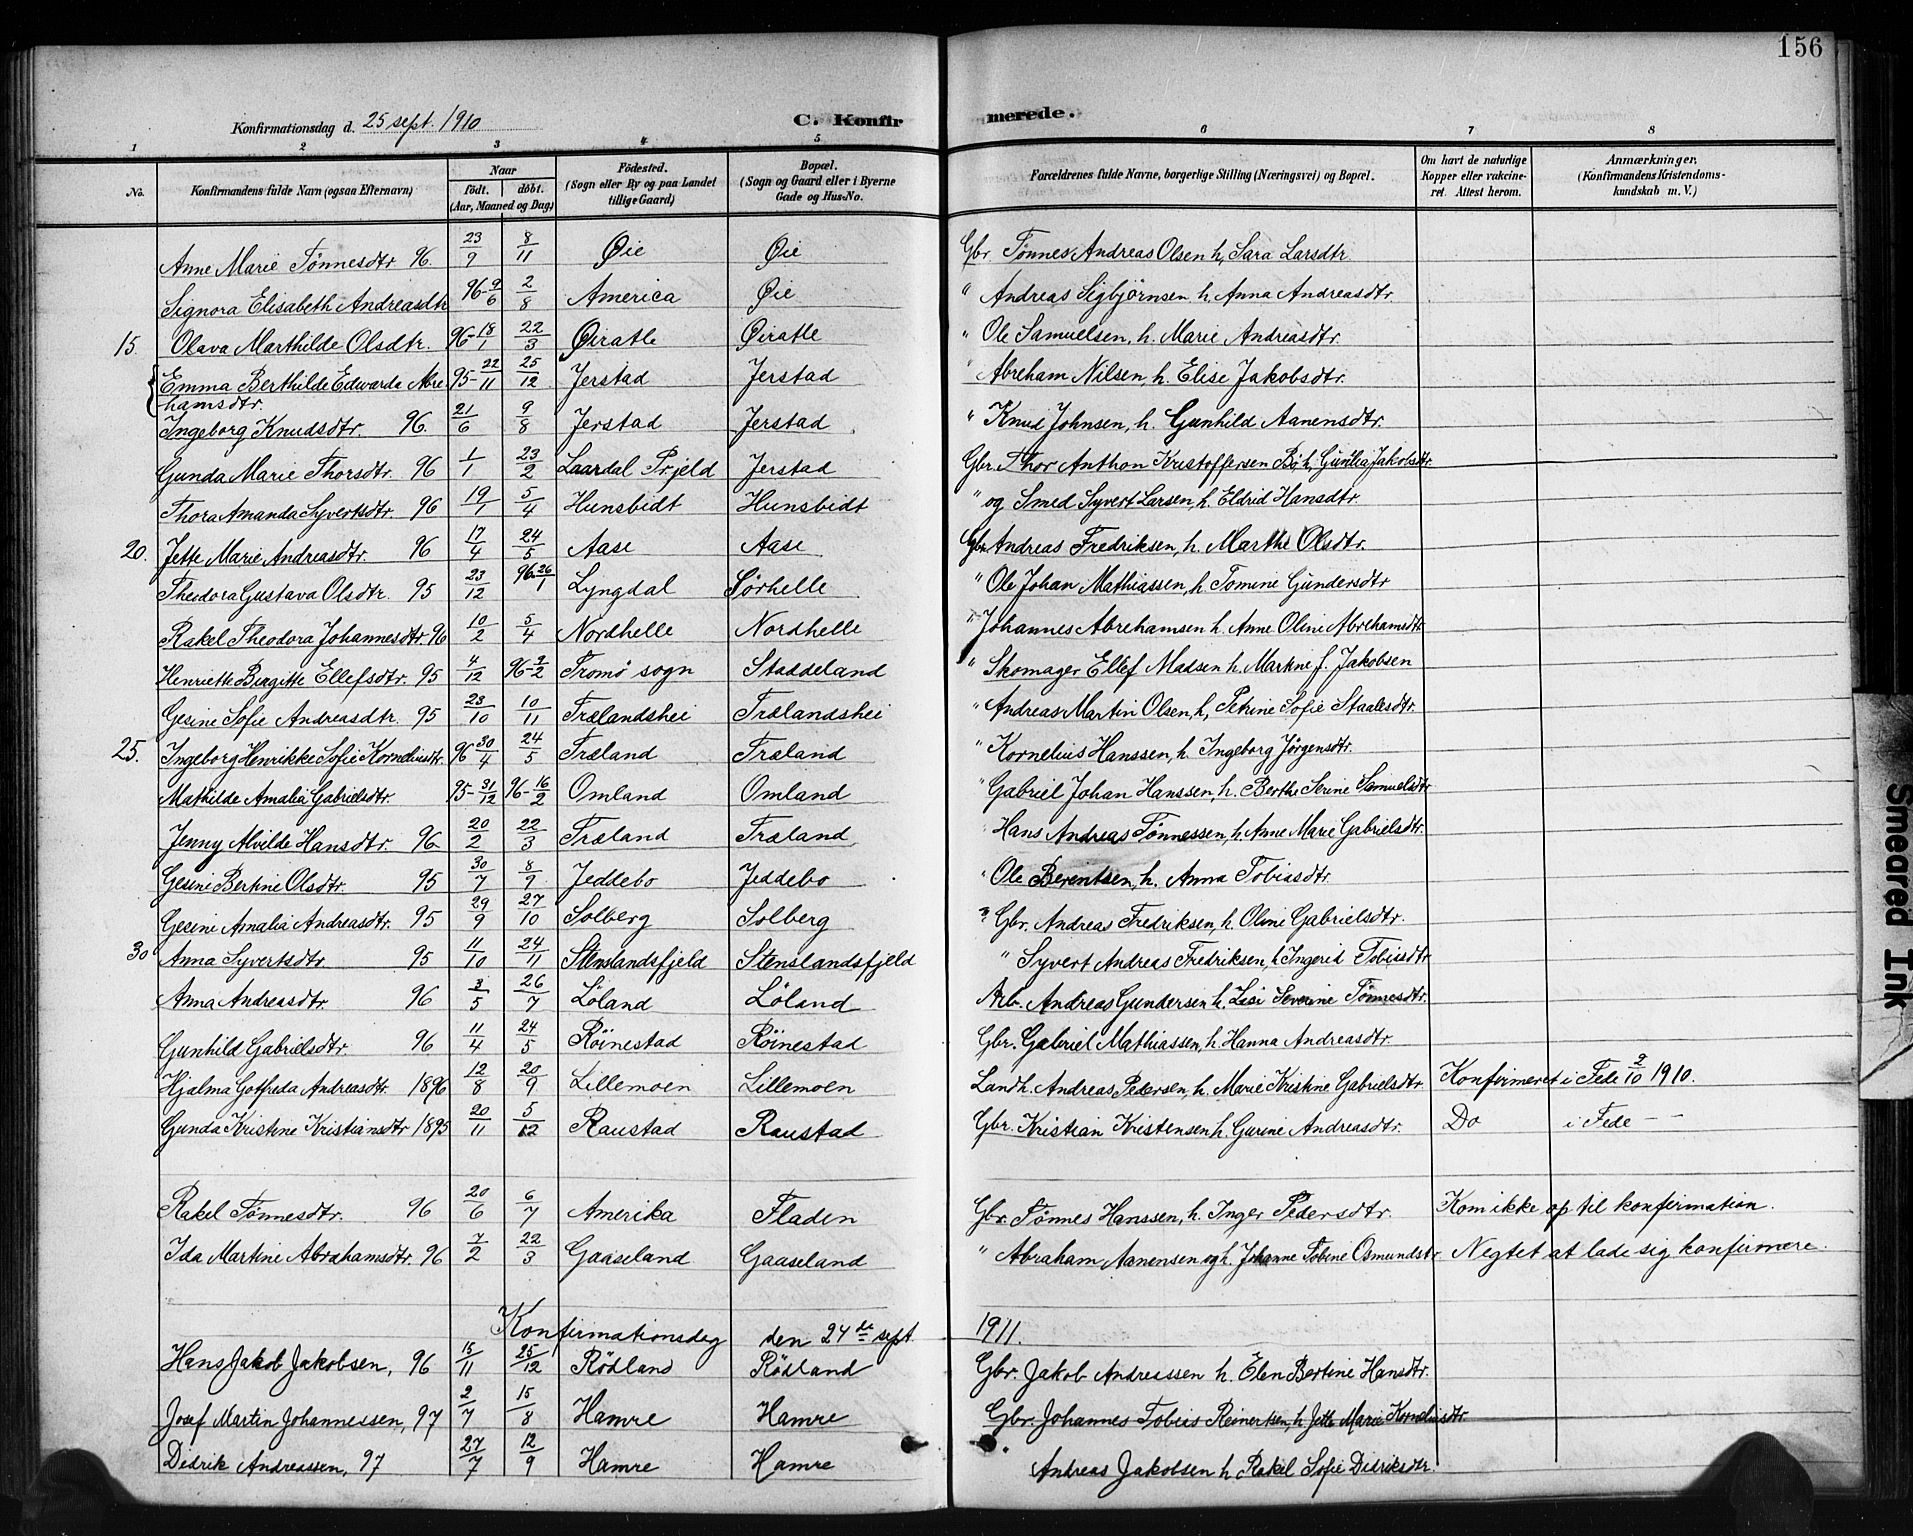 156
Konfirmationsdag d. 25 sept. 1910 C. Konfir merede.
1 2 3 4 5 6 7 8
No. Konfirmandens fulde Navn (ogsaa Efternavn) Naar født. døbt. (Aar, Maaned og Dag) Fødested. (Sogn eller By og paa Landet tillige Gaard) Bopæl. (Sogn og Gaard eller i Byerne Gade og Hus-No. Forældrenes fulde Navne, borgerlige Stilling (Næringsvei) og Bopæl. Om havt de naturlige Kopper eller vakcineret. Attest herom. Anmærkninger. (Konfirmandens Kristendomskundskab m. V.)
Anne Marie Tønnesdtr 96. 23/9 8/11 Øie Øie Gbr. Tønnes Andreas Olsen h. Sara Larsdtr.
Signora Elisabeth Andreasdtr 96-9/6 2/8 America Øie " Andreas Sigbjørnsen h. Anna Andreasdtr.
15. Olava Marthilde Olsdtr. 96-18/1 22/3 Øiratle Øiratle " Ole Samuelsen, h. Marie Andreasdtr.
Emma Berthilde Edwarda Abre 95-22/11 25/12 Jerstad Jerstad " Abreham Nilsen, h. Elise Jakobsdtr.
hamsdtr.
Ingeborg Knudsdtr. 96. 21/6 9/8 Jerstad Jerstad " Knud Johnsen, h. Gunhild Aanensdtr.
Gunda Marie Thorsdtr. 96 1/1 23/2 Laardal Prjeld Jerstad Gbr. Thor Anthon Kristoffersen Bö h. Gunlea Jakobsdtr.
Thora Amanda Syvertsdtr. 96 19/1 5/4 Hunsbidt Hunsbidt " og Smed Syvert Larsen h. Eldrid Hansdtr.
20. Jette Marie Andreasdtr. 96 17/4 24/5 Aase Aase Gbr. Andreas Fredriksen, h. Marthe Olsdtr.
Theodora Gustava Olsdtr. 95 23/12 96-26/1 Lyngdal Sørhelle " Ole Johan Mathiassen, h. Tomine Gundersdtr
Rakel Theodora Johannesdtr. 96 10/2 5/4 Nordhelle Nordhelle " Johannes Abrehamsen h. Anne Oline Abrehamsdtr.
Henriette Birgitte Ellefsdtr. 95 4/12 96-9/2 Tromø sogn Staddeland " Skomager Ellef Madsen h. Martine f. Jakobsen
Gesine Sofie Andreasdtr. 95 23/10 10/11 Trælandshei Trælandshei " Andreas Martin Olsen, h. Petrine Sofie Staalesdtr.
25. Ingeborg Henrikke Sofie Korneliusdtr. 96 30/4 24/5 Træland Træland " Kornelius Hanssen, h. Ingeborg Jørgensdtr.
Mathilde Amalia Gabrielsdtr. 95-31/12 96-16/2 Omland Omland " Gabriel Johan Hanssen, h. Berthe Serine Samuelsdtr
Jenny Alvilde Hansdtr. 96 20/2 22/3 Træland Træland " Hans Andreas Tønnessen, h. Anne Marie Gabrielsdtr.
Gesine Bertine Olsdtr. 95 30/7 8/9 Jeddebo Jeddebo " Ole Berentsen, h. Anna Tobiasdtr.
Gesine Amalia Andreasdtr. 95 29/9 27/10 Solberg Solberg " Gbr. Andreas Fredriksen, h. Oline Gabrielsdtr.
30 Anna Syvertsdtr. 95 11/10 24/11 Stenslandsfjeld Stenslandsfjeld " Syvert Andreas Fredriksen, h Ingerid Tobiasdtr
Anna Andreasdtr. 96 3/5 26/7 Löland Löland Arb. Andreas Gundersen h. Lise Severine Tönnesdtr.
Gunhild Gabrielsdtr. 96 11/4 24/5 Röinestad Röinestad Gbr. Gabriel Mathiassen, h. Hanna Andreasdtr.
Hjalma Gotfreda Andreasdtr 1896 12/8 20/9 Lillemoen Lillemoen Landh. Andreas Pedersen, h. Marie Kristine Gabrielsdtr Konfirmeret i Fede 9/10 1910.
Gunda Kristine Kristiansdtr 1895 20/11 5/12 Raustad Raustad Gbr. Kristian Kristensen h. Gurine Andreasdtr. Do i Fede — —
Rakel Tønnesdtr. 96 20/6 6/7 Amerika Fladen Gbr. Tønnes Hanssen, h. Inger Pedersdtr. Kom ikke op til konfirmation.
Ida Martine Abrahamsdtr. 96 7/2 22/3 Gaaseland Gaaseland " Abraham Aanensen og h. Johanne Tobine Osmundstr. Negtet at lade sig konfirmere.
Konfirmationsdag den 24de sept. 1911.
Hans Jakob Jakobsen, 96 15/11 25/12 Rödland Rödland Gbr. Jakob Andreassen h. Elen Bertine Hansdtr.
Josef Martin Johannessen, 97 2/7 15/8 Hamre Hamre Gbr. Johannes Tobias Reinertsen, h. Jette Marie Korneliusdtr.
Didrik Andreassen, 97 27/7 12/9 Hamre Hamre " Andreas Jakobsen h. Rakel Sofie Didriksdtr.
Smeared Ink